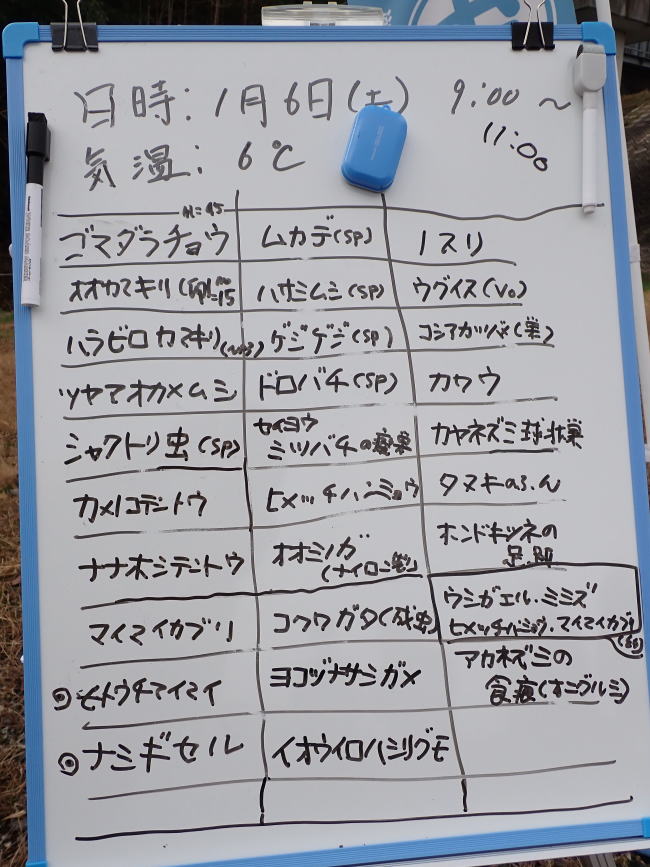 日時: 1月6日(土) 9:00～
11:00
気温: 6℃
ゴマダラチョウ
オオカマキリ
ハラビロカマキリ
ツヤアオカメムシ
シャクトリ虫(sp)
カメノコテントウ
ナナホシテントウ
マイマイカブリ
ヒメツチハンミョウ
◎ ナミギセル
ムカデ(sp)
ハサミムシ(sp)
ゲジゲジ(sp)
ドロバチ(sp)
セイヨウ
ミツバチの廃巣
オオミノガ
コクワガタ(成虫)
ヨコヅナサシガメ
イオウイロハシリグモ
ノスリ
ウグイス(Vo)
コシアカツバメ(巣)
カワウ
カヤネズミ球状巣
タヌキのふん
ホンドキツネの
足跡
ウシガエル・ミミズ
ヒメツチハンミョウ・マイマイカブリ
アカネズミの
食痕(オニグルミ)